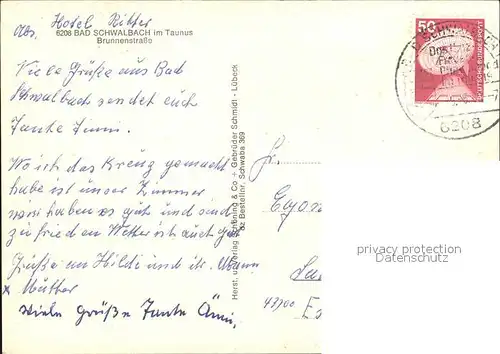 Abs. Hotel Ritter
6208 BAD SCHWALBACH im Taunus
Brunnenstraße
Viele Grüße aus Bad
Schwalbach sendet euch
Tante Änni.
Wo ich das Kreuz gemacht
habe ist unser Zimmer
wir haben es gut und sind
zufrieden Wetter ist auch gut
Grüße an Hilde und ihr. Mann
x Mutter
viele Grüße Tante Änni.
Herst. u. Verlag Schöning & Co + Gebrüder Schmidt - Lübeck
Bestellnr. Schwaba 369
Fr.
Egon
4300 Es
50
DEUTSCHE BUNDESPOST
6208
privacy protection
Datenschutz